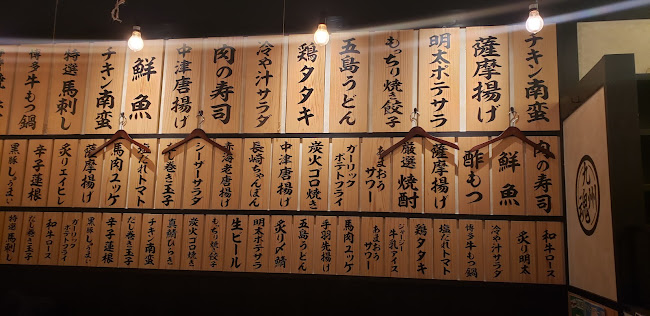 チキン南蛮
薩摩揚げ
明太ポテサラ
もっちり焼き餃子
五島うどん
鶏タタキ
冷や汁サラダ
肉の寿司
中津唐揚げ
鮮魚
チキン南蛮
特選馬刺し
博多牛もつ鍋
肉の寿司
鮮魚
酢もつ
薩摩揚げ
厳選焼酎
あまおうサワー
ガーリックポテトフライ
炭火コロ焼き
中津唐揚げ
長崎ちゃんぽん
赤海老唐揚げ
シーザーサラダ
だし巻き玉子
塩だれトマト
馬肉ユッケ
薩摩揚げ
炙りエイヒレ
辛子蓮根
黒豚しゅうまい
和牛ロース
炙り明太
冷や汁サラダ
博多牛もつ鍋
塩だれトマト
鶏タタキ
ジャージー牛乳アイス
あまおうサワー
馬肉ユッケ
手羽先揚げ
五島うどん
炙り〆鯖
明太ポテサラ
生ビール
もっちり焼き餃子
炭火コロ焼き
真鯛ひらき
チキン南蛮
だし巻き玉子
辛子蓮根
黒豚しゅうまい
ガーリックポテトフライ
和牛ロース
だし巻き玉子
特選馬刺し
九州魂